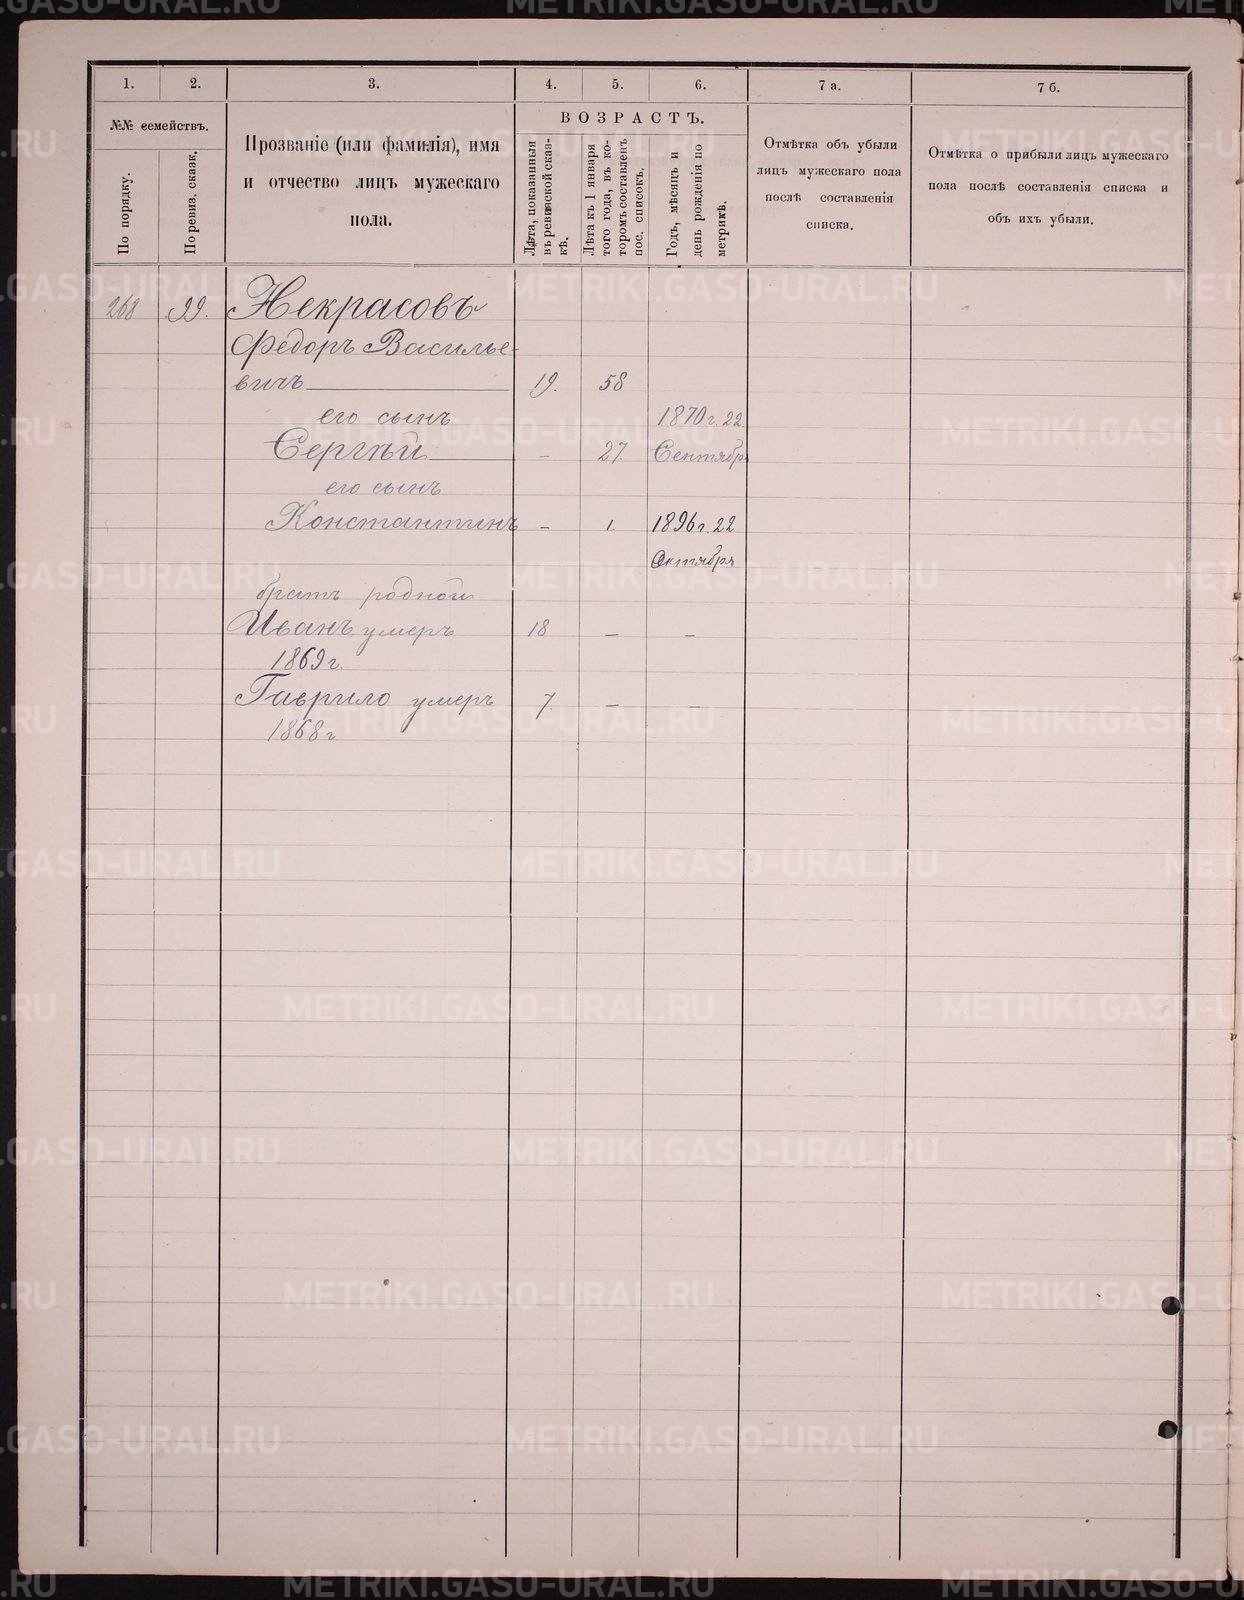 1.
2.
3.
4.
5.
6.
7 а.
7 б.
№№ семействъ.
По порядку.
По ревиз. сказк.
Прозваніе (или фамилія), имя
и отчество лицъ мужескаго
пола.
ВОЗРАСТЪ.
Лѣта, показанныя
въ ревизской сказ-
кѣ.
Лѣта къ 1 января
того года, въ ко-
торомъ составленъ
пос. списокъ.
Годъ, мѣсяцъ и
день рожденія по
метрикѣ.
Отмѣтка объ убыли
лицъ мужескаго пола
послѣ составленія
списка.
Отмѣтка о прибыли лицъ мужескаго
пола послѣ составленія списка и
объ ихъ убыли.
268 99. Некрасовъ
Федоръ Василье-
вичъ 19. 58
его сынъ 1870 г. 22
Сергѣй - 27. Сентябр
его сынъ
Константинъ - 1. 1896 г. 22
Октября
братъ родной
Иванъ умеръ 18 - -
1869 г.
Гаврило умеръ 7. - -
1868 г.
METRIKI.GASO-URAL.RU